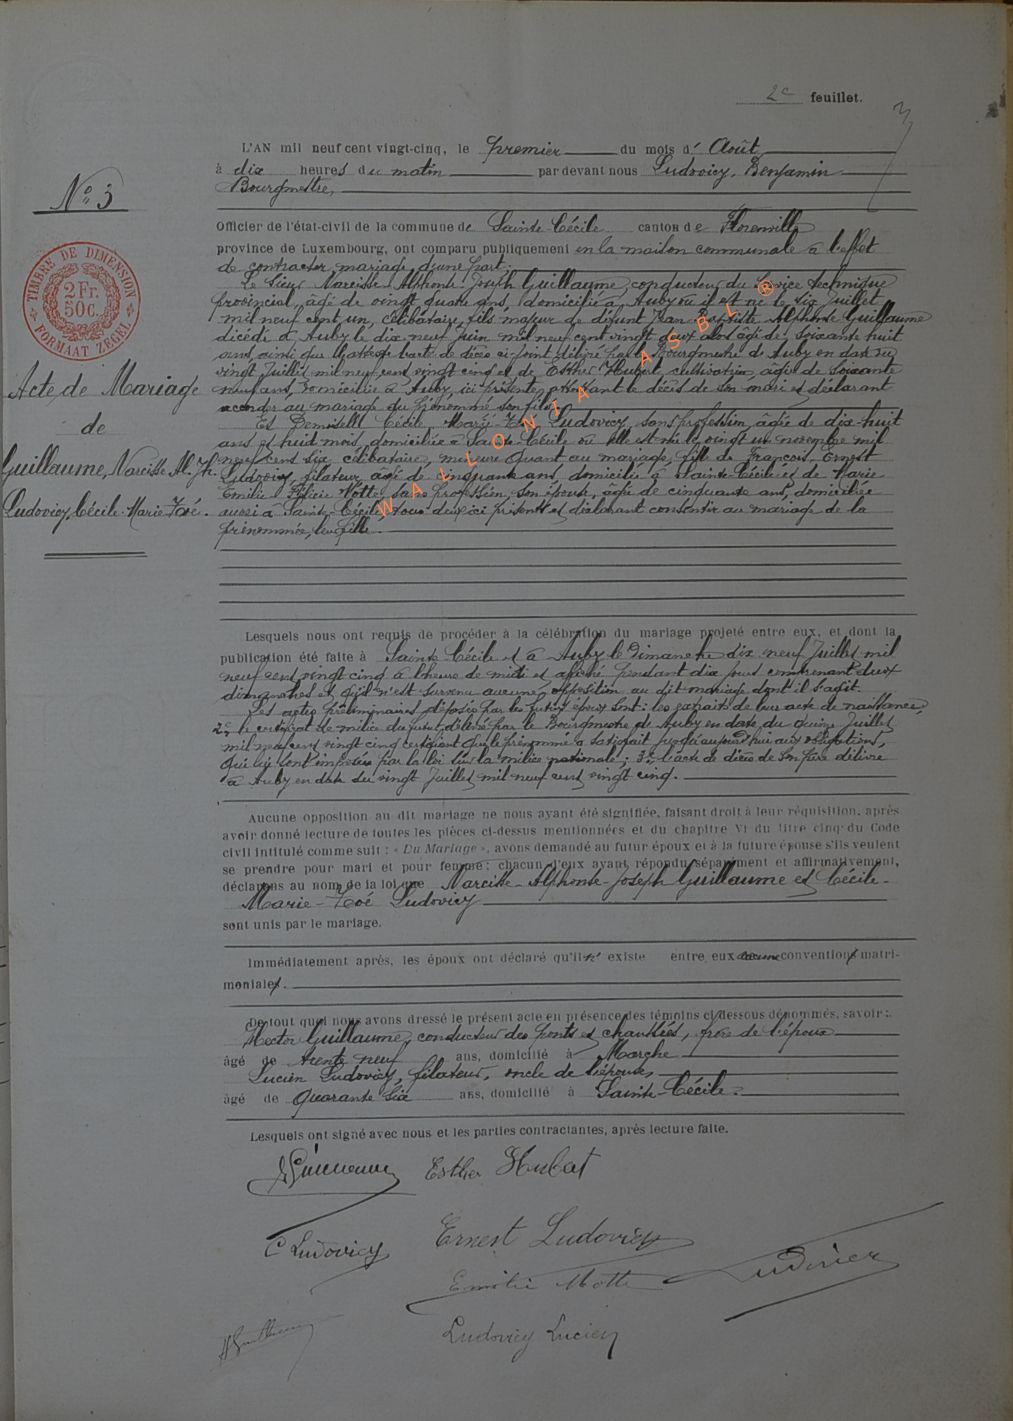 2e feuillet.
3
L'AN mil neuf cent vingt-cinq, le premier du mois d' Août
à dix heures du matin par devant nous Ludovicy, Benjamin
Bourgmestre,
Officier de l'état-civil de la commune de Sainte-Cécile canton de Florenville
province de Luxembourg, ont comparu publiquement en la maison communale à l'effet
de contracter mariage, d'une part:
Le Sieur Narcisse-Alphonse-Joseph Guillaume, conducteur du service technique
provincial, âgé de vingt quatre ans, domicilié à Auby où il est né le six juillet
mil neuf cent un, célibataire, fils majeur de défunt Jean-Baptiste Alphonse Guillaume
décédé à Auby le dix neuf juin mil neuf cent vingt deux alors âgé de soixante huit
ans, ainsi que l'acte de décès ci-joint délivré par le Bourgmestre de Auby en date du
vingt Juillet mil neuf cent vingt cinq et de Esther Hubert, cultivatrice, âgée de soixante
neuf ans, domiciliée à Auby, ici présente, attestant le décès de son mari et déclarant
au mariage du prénommé son fils
Et Demoiselle Cécile-Marie-Zoé Ludovicy, sans profession, âgée de dix-huit
ans et huit mois, domiciliée à Sainte-Cécile où elle est née le vingt un novembre mil
neuf cent six, célibataire, mineure quant au mariage, fille de François Ernest
Ludovicy, filateur, âgé de cinquante ans, domicilié à Sainte-Cécile et de Marie
Emilie Félicie Motte, sans profession, son épouse, âgée de cinquante ans, domiciliée
aussi à Sainte-Cécile, tous deux ici présents et déclarant consentir au mariage de la
prénommée, leur fille.
Lesquels nous ont requis de procéder à la célébration du mariage projeté entre eux, et dont la
publication été faite à Sainte-Cécile et à Auby le Dimanche dix neuf Juillet mil
neuf cent vingt cinq à l'heure de midi et affiché pendant dix jours contenant deux
dimanches et qu'il n'est survenu aucune opposition au dit mariage dont il s'agit.
Les actes préliminaires déposés par les futurs époux sont: les extraits de leur acte de naissance;
2° le certificat de milice du futur délivré par le Bourgmestre de Auby en date du quinze Juillet
mil neuf cent vingt cinq certifiant que le prénommé a satisfait jusqu'aujourd'hui aux obligations,
qui lui sont imposées par la loi sur la milice nationale; 3° l'acte de décès de son père délivré
à Auby en date du vingt Juillet mil neuf cent vingt cinq.
Aucune opposition au dit mariage ne nous ayant été signifiée, faisant droit à leur réquisition, après
avoir donné lecture de toutes les pièces ci-dessus mentionnées et du chapitre VI du titre cinq du Code
civil intitulé comme suit : « Du Mariage », avons demandé au futur époux et à la future épouse s'ils veulent
se prendre pour mari et pour femme; chacun d'eux ayant répondu séparément et affirmativement,
déclarons au nom de la loi que Narcisse-Alphonse-Joseph Guillaume et Cécile-
Marie-Zoé Ludovicy
sont unis par le mariage.
Immédiatement après, les époux ont déclaré qu'il n' existe entre eux aucune conventions matri-
moniales.
De tout quoi nous avons dressé le présent acte en présence des témoins ci-dessous dénommés, savoir :
Hector Guillaume, conducteur des ponts et chaussées, frère de l'époux
âgé de trente neuf ans, domicilié à Marche
Lucien Ludovicy, filateur, oncle de l'épouse,
âgé de quarante six ans, domicilié à Sainte-Cécile.
Lesquels ont signé avec nous et les parties contractantes, après lecture faite.
Esther Hubert
C Ludovicy
Ernest Ludovicy
Emilie Motte
Ludovicy
Ludovicy Lucien
N° 3
TIMBRE DE DIMENSION
2 Fr.
50c.
FORMAAT ZEGEL
Acte de Mariage
de
Guillaume, Narcisse Al. Jh.
Ludovicy, Cécile-Marie-Zoé.
WALLONIA ASBL ®